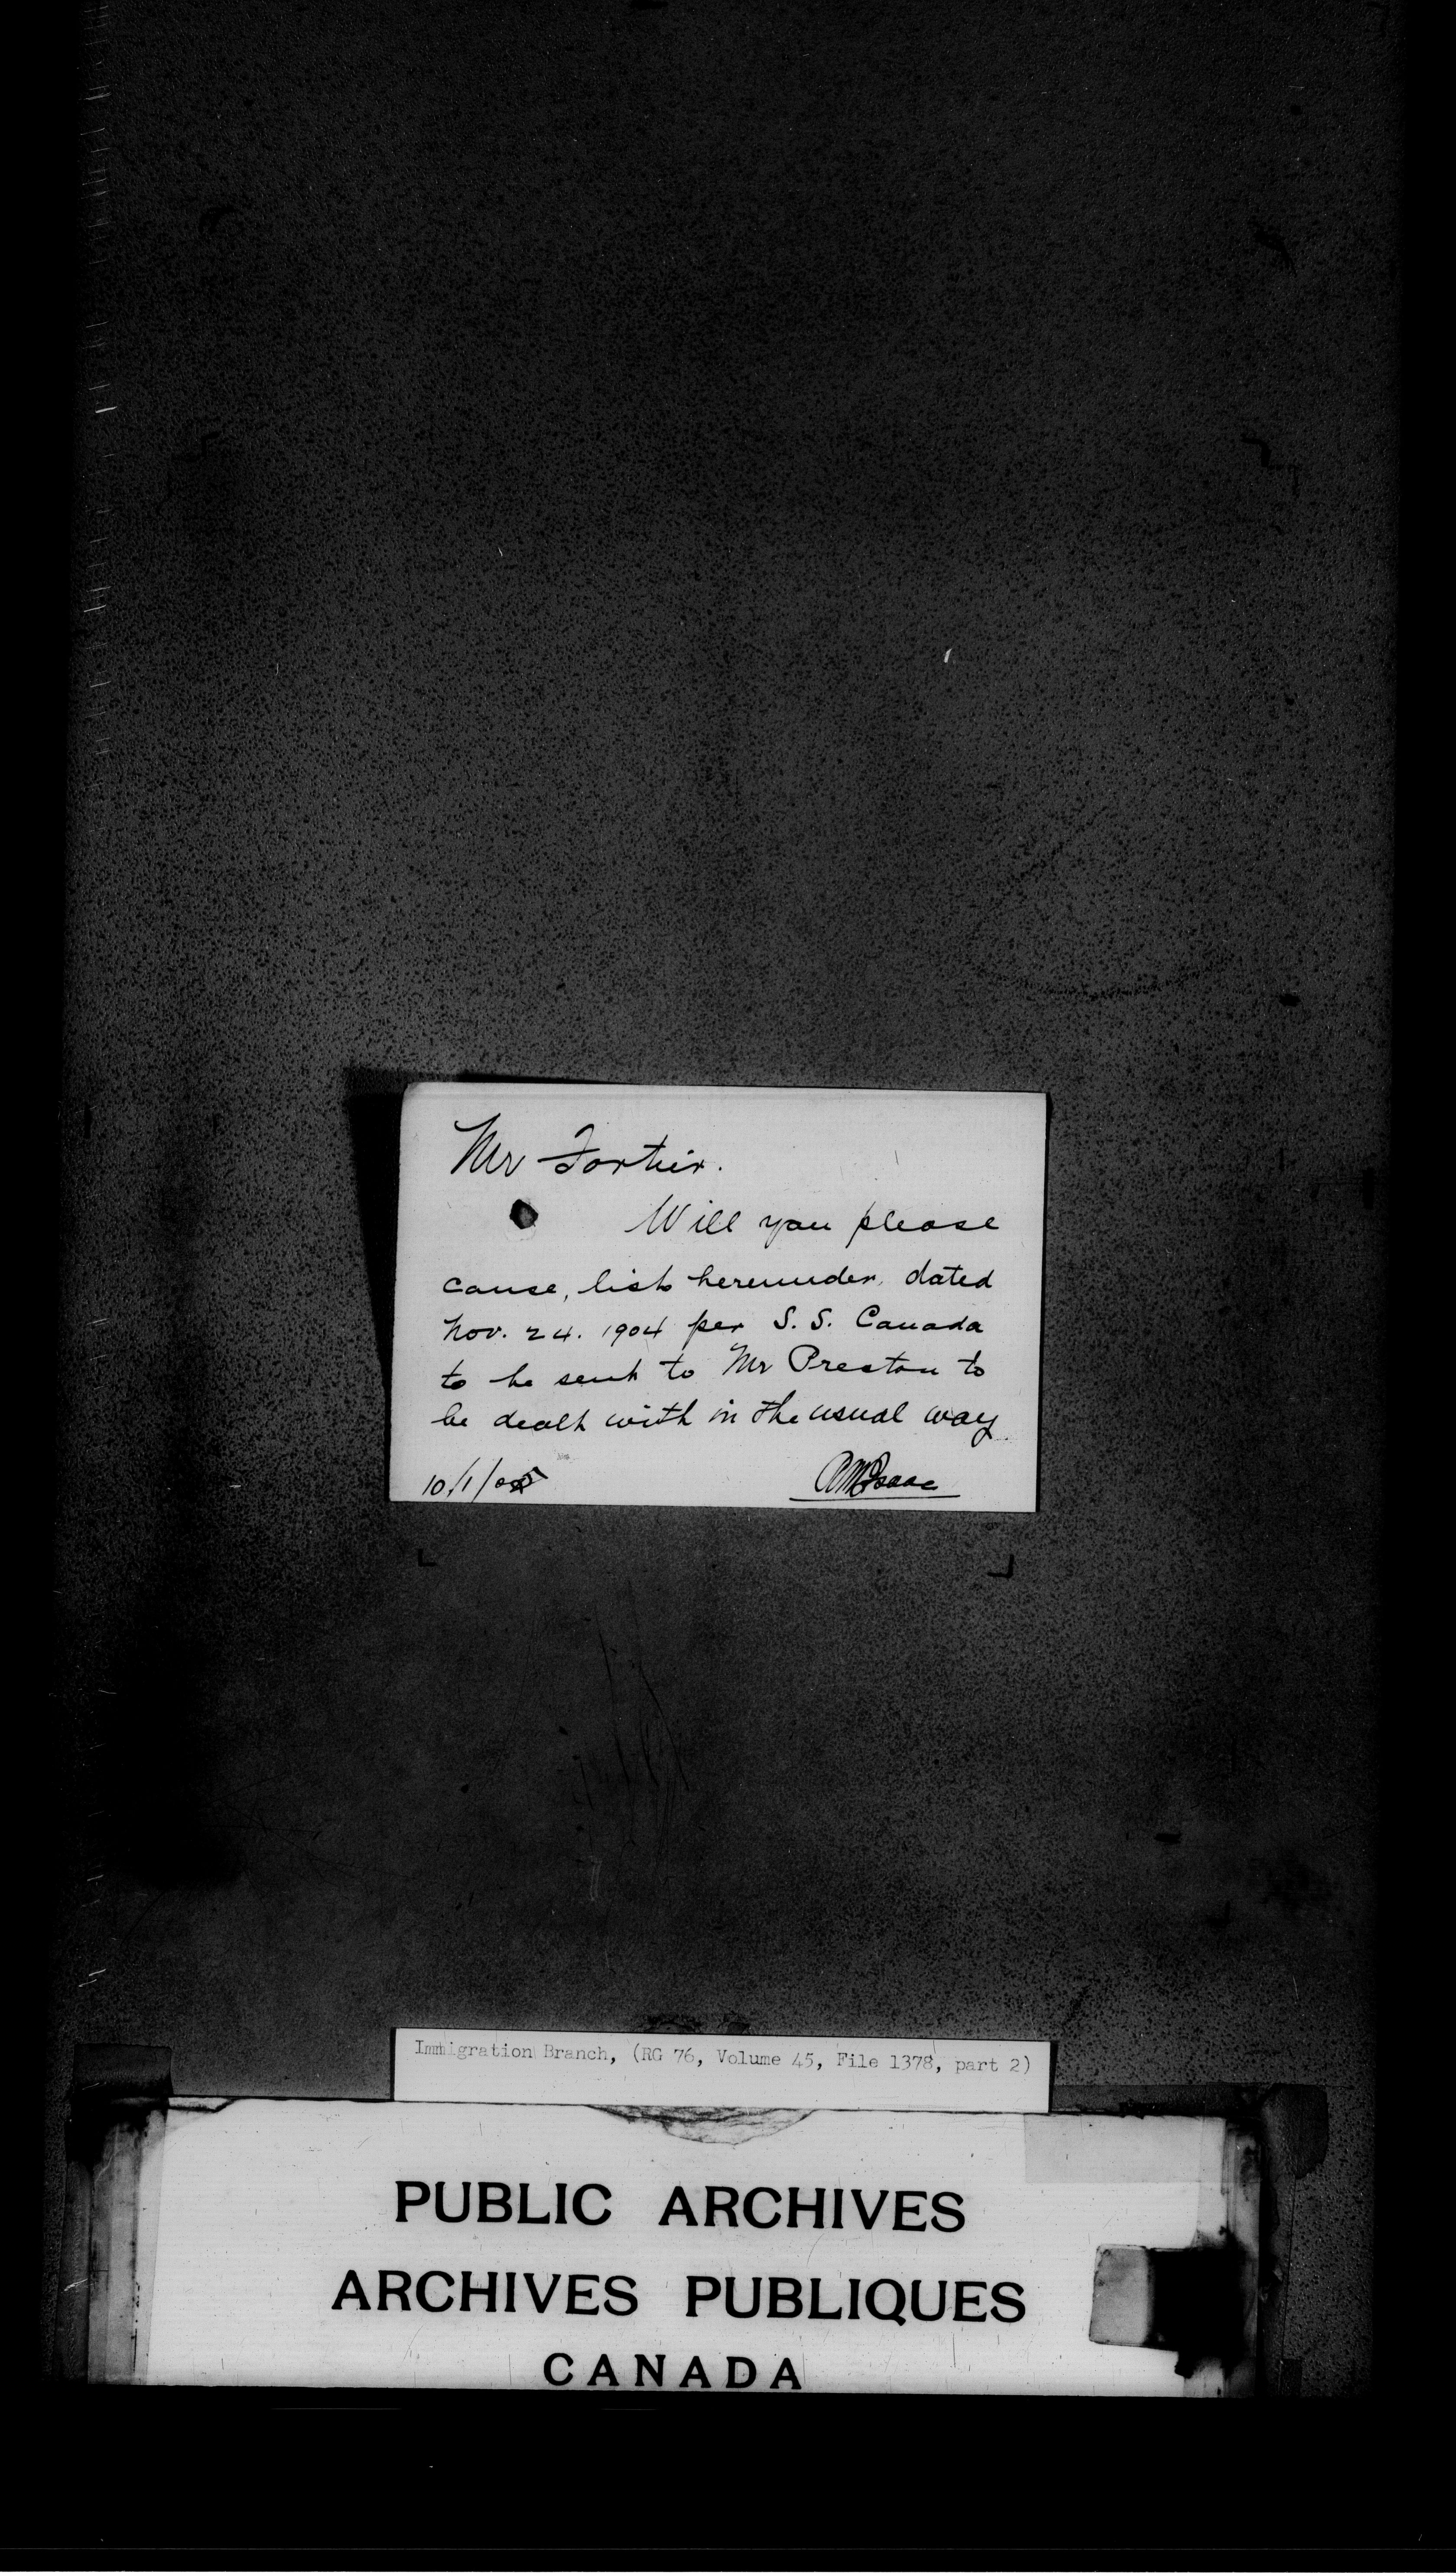 Mr Fortier.
Will you please
cause, list hereunder, dated
Nov. 24. 1904 per S. S. Canada
to be sent to Mr Preston to
be dealt with in the usual way.
10/1/05
Immigration Branch, (RG 76, Volume 45, File 1378, part 2)
PUBLIC ARCHIVES
ARCHIVES PUBLIQUES
CANADA